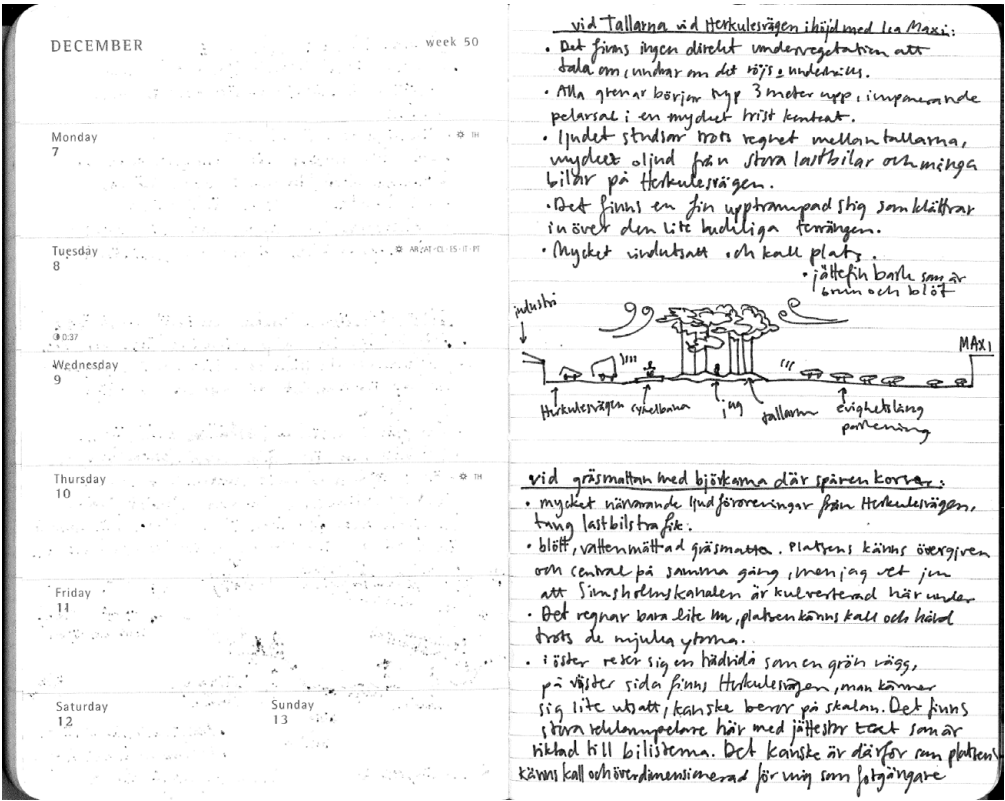 DECEMBER
week 50
Monday
7
TH
Tuesday
8
AR·AT·CL·ES·IT·PT
0:37
Wednesday
9
Thursday
10
TH
Friday
11
Saturday
12
Sunday
13
vid Tallarna vid Herkulesvägen i höjd med Ica Maxi:
• Det finns ingen direkt undervegetation att
tala om, undrar om det röjs o underhålls.
• Alla grenar börjar typ 3 meter upp, imponerande
pelarsal i en mycket trist kontext.
• ljudet studsar trots regnet mellan tallarna,
mycket oljud från stora lastbilar och många
bilar på Herkulesvägen.
• Det finns en fin upptrampad stig som klättrar
in över den lite kuperade terrängen.
• Mycket vindutsatt och kall plats.
• jättefin bark som är
brun och blöt
industri
MAXI
Herkulesvägen
cykelbana
jag
tallarna
evighetslång
parkering
vid gräsmattan med björkarna där spåren korsar:
• mycket närvarande ljudföroreningar från Herkulesvägen,
tung lastbilstrafik.
• blött, vattenmättad gräsmatta. Platsen känns övergiven
och central på samma gång, men jag vet ju
att Simsholmskanalen är kulverterad här under
• Det regnar bara lite nu, platsen känns kall och hård
trots de mjuka ytorna.
• i öster reser sig en trädridå som en grön vägg,
på väster sida finns Herkulesvägen, man känner
sig lite utsatt, kanske beror på skalan. Det finns
stora reklampelare här med jättestor text som är
riktad till bilisterna. Det kanske är därför som platsen
känns kall och överdimensionerad för mig som fotgängare